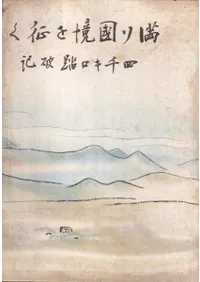 滿ソ國境を征く
四千キロ踏破記